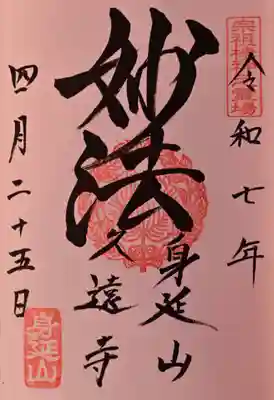 令和七年
妙法
身延山
久遠寺
四月二十五日
身延山